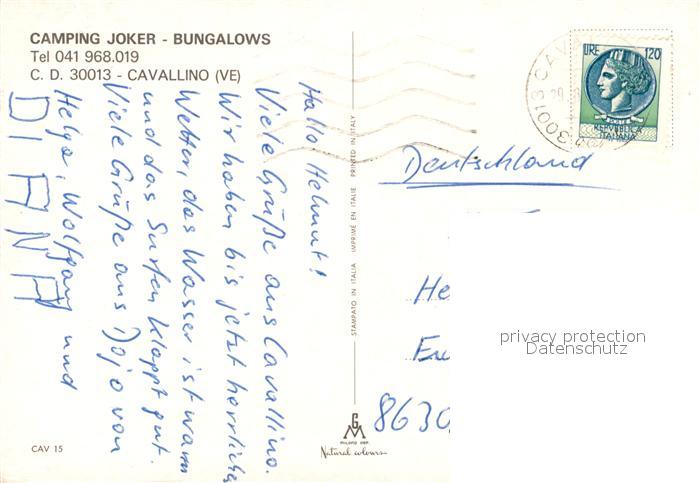 CAMPING JOKER - BUNGALOWS
Tel 041 968.019
C. D. 30013 - CAVALLINO (VE)
Hallo Helmut!
Viele Grüße aus Cavallino.
Wir haben bis jetzt herrliches
Wetter, das Wasser ist warm
und das Surfen klappt gut.
Viele Grüße aus Dojo von
Helga, Wolfgang und
DIANA
CAV 15
STAMPATO IN ITALIA IMPRIMÉ EN ITALIE PRINTED IN ITALY
GM
MILANO DEP.
Natural colours
30013 CAV
LIRE 120
REPVBBLICA
ITALIANA
Deutschland
He
Eu
8630
privacy protection
Datenschutz